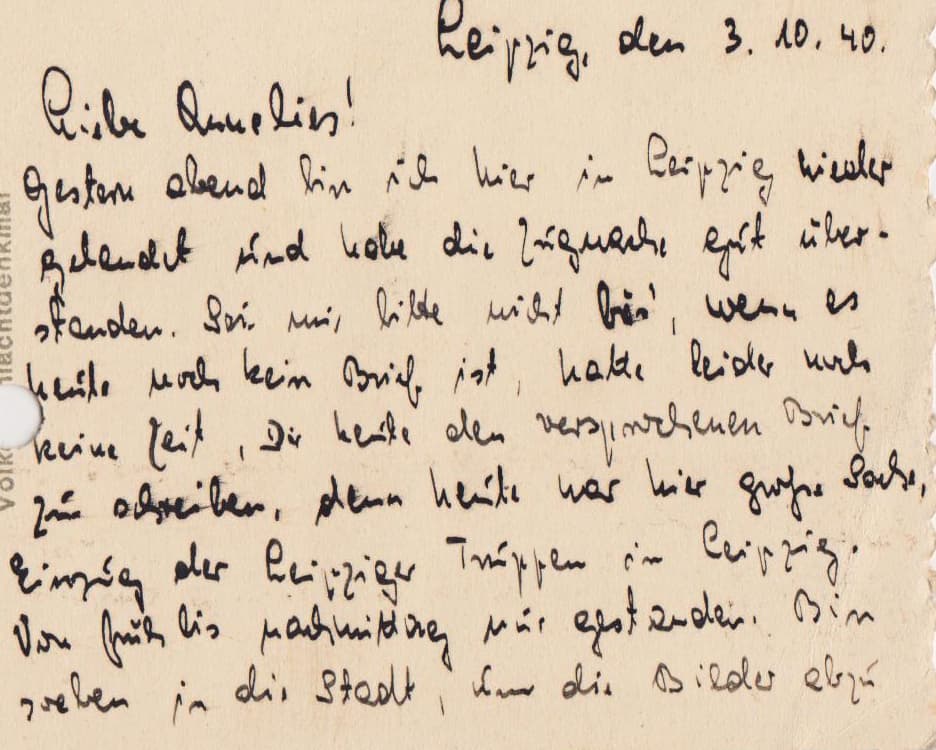 Leipzig, den 3. 10. 40.
Liebe Annelies!
Gestern abend bin ich hier in Leipzig wieder
gelandet und habe die Zugwache gut über-
standen. Sei mir bitte nicht bös', wenn es
heute noch kein Brief ist, hatte leider noch
keine Zeit, Dir heute den versprochenen Brief
zu schreiben, denn heute war hier große Sache,
Einzug der Leipziger Truppen in Leipzig.
Von früh bis nachmittag nur gestanden. Bin
soeben in die Stadt, um die Bilder abzu